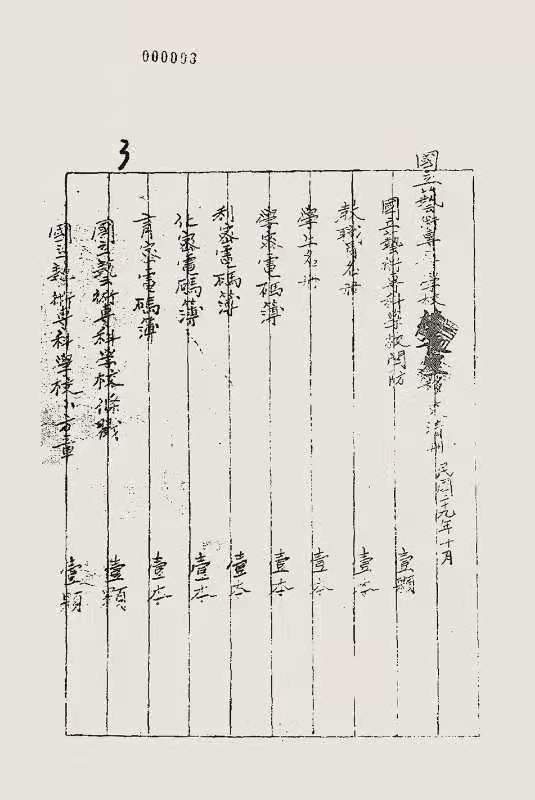 000003
3
國立藝術專科學校 移交清册 民國二十九年十月
國立藝術專科學校關防 壹顆
教職員名册 壹本
學生名册 壹本
學密電碼簿 壹本
利密電碼簿 壹本
化密電碼簿 壹本
育密電碼簿 壹本
國立藝術專科學校條戳 壹顆
國立藝術專科學校小方章 壹顆